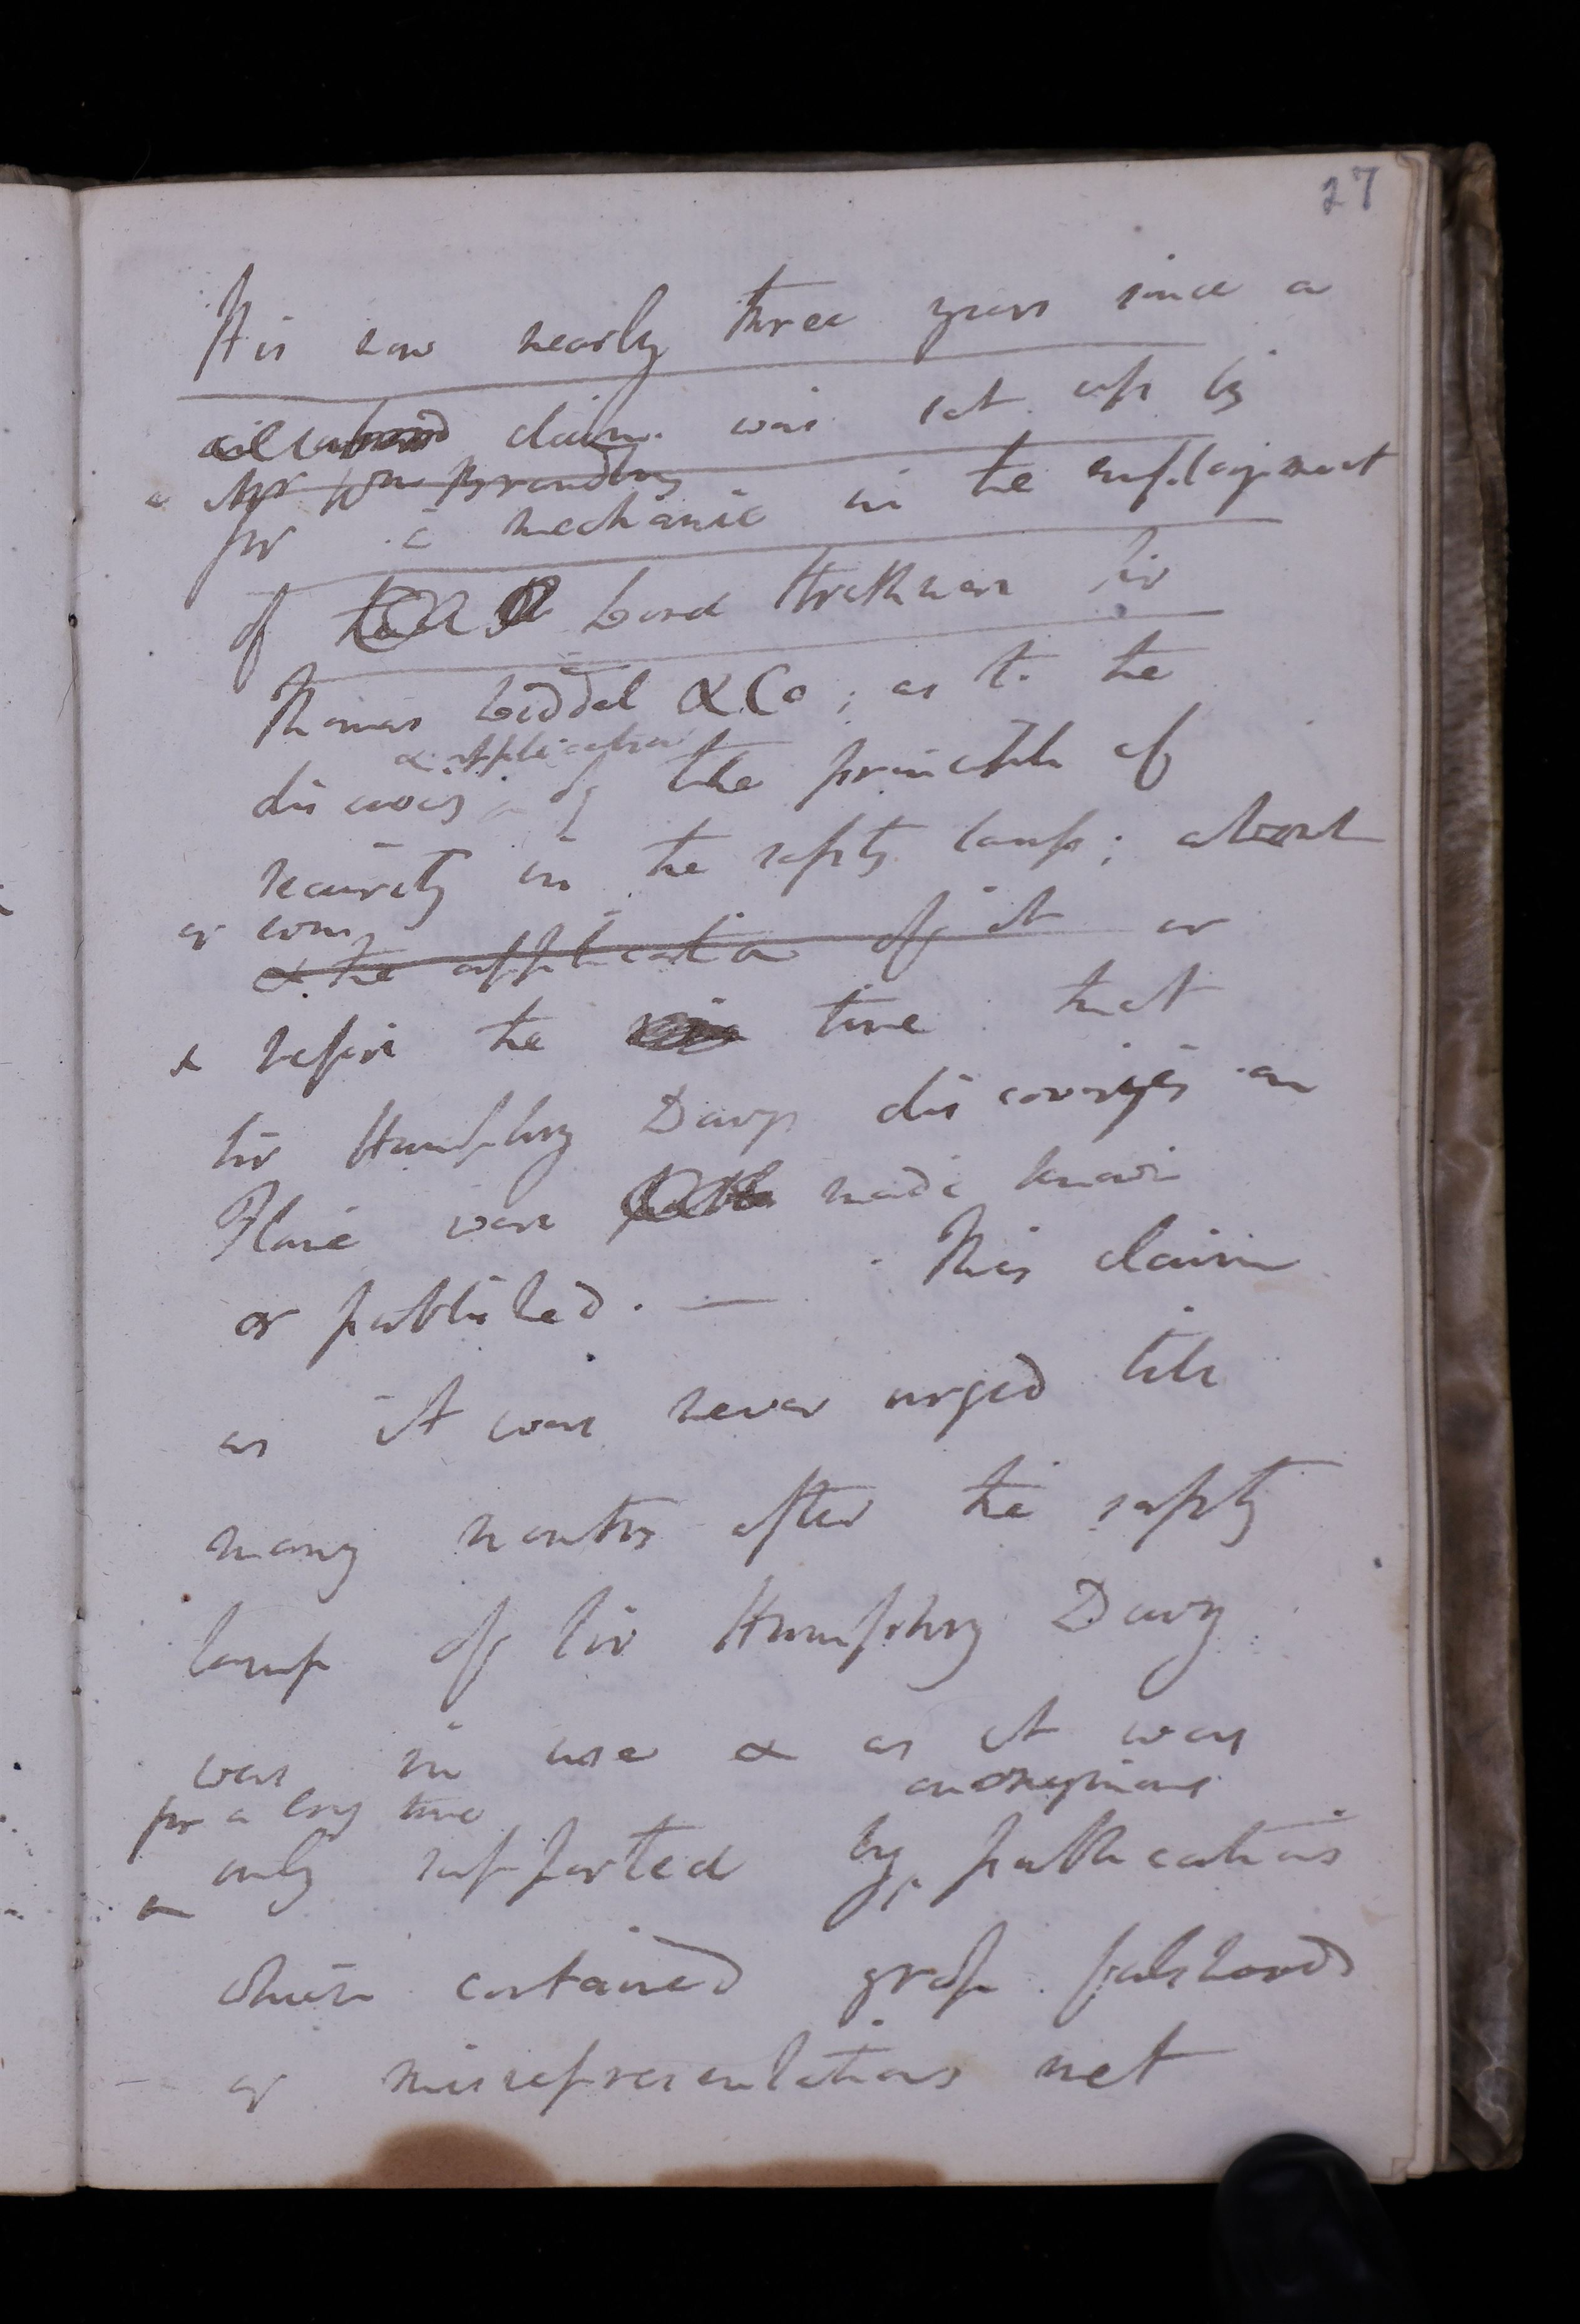 27
It is now nearly three years since a
claim was set up by
Mr Wm Brandling
for a mechanic in the employment
of Lord Strathmore Sir
Thomas Liddel & Co; as to the
& application
discovery of the principle of
security in the safety lamp; about
or even
& the application of it or
& before the time that
Sir Humphry Davys discoveries on
Flame were made known
or published. — This claim
as it was never urged till
many months after the safety
lamp of Sir Humphry Davy
was in use & as it was
for a long time anonymous
only supported by publications
&
which contained gross falshoods
or misrepresentations met